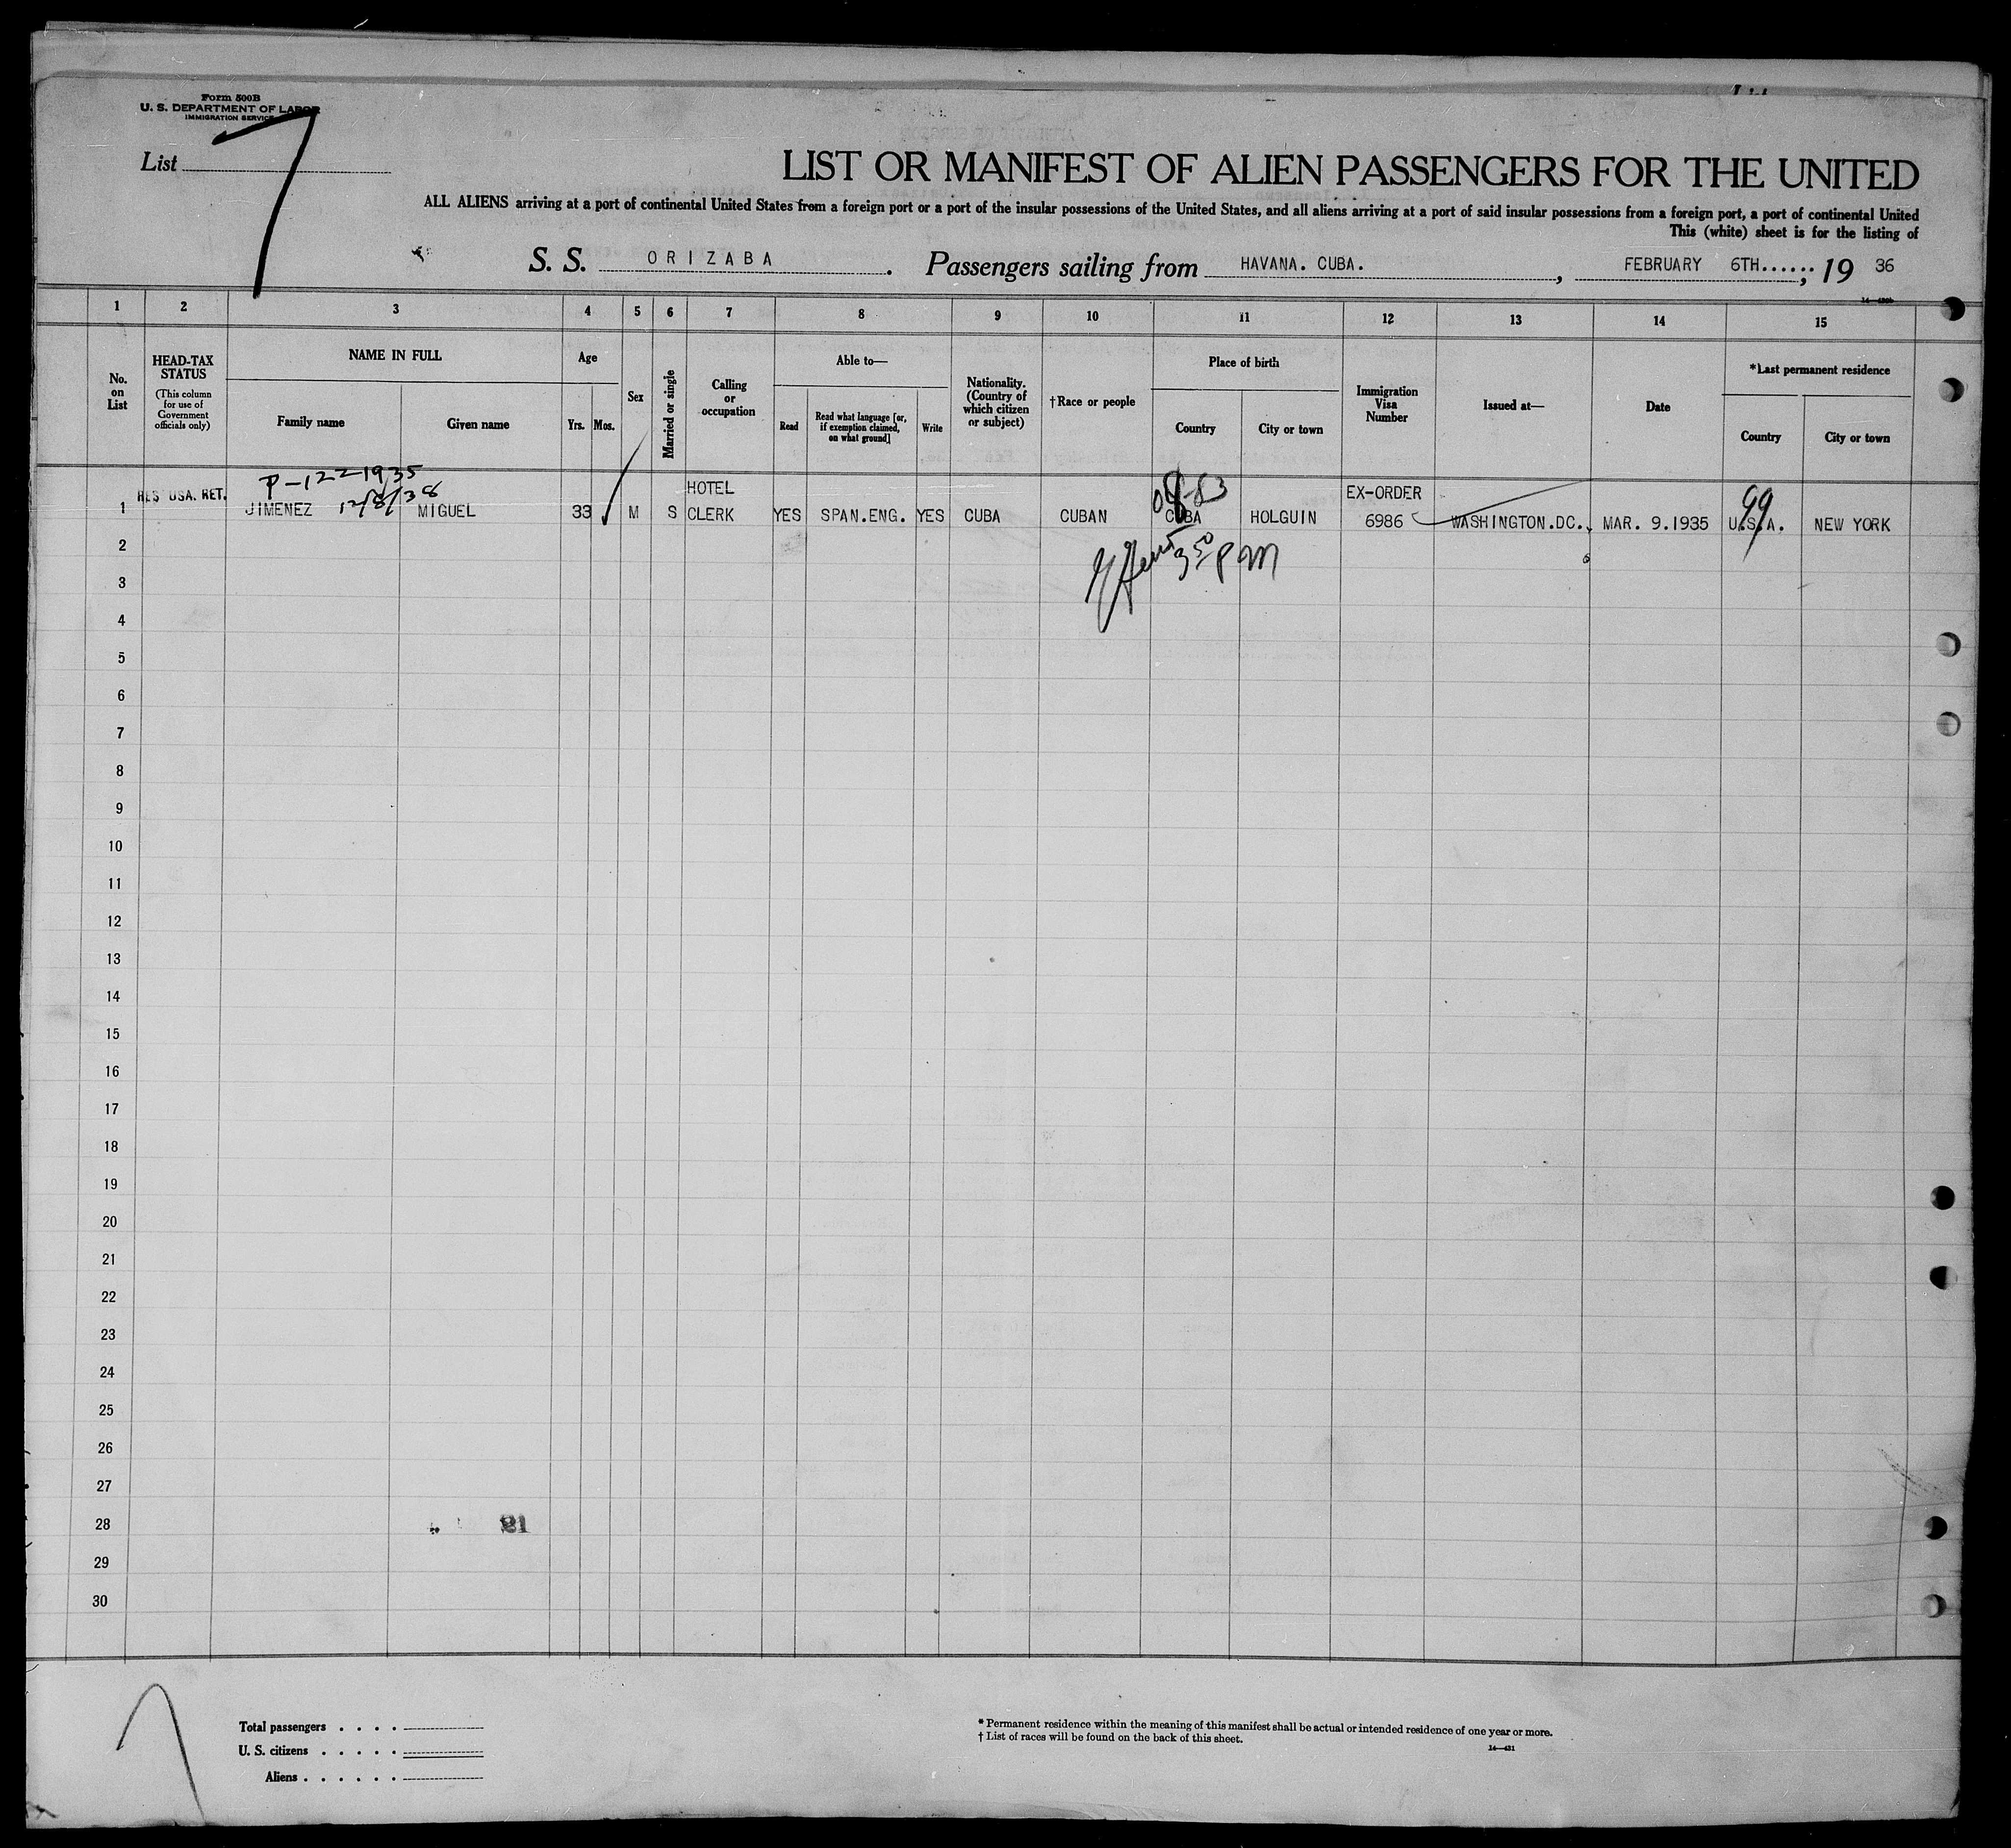 Form 500B
U. S. DEPARTMENT OF LABOR
IMMIGRATION SERVICE
List 7
LIST OR MANIFEST OF ALIEN PASSENGERS FOR THE UNITED
ALL ALIENS arriving at a port of continental United States from a foreign port or a port of the insular possessions of the United States, and all aliens arriving at a port of said insular possessions from a foreign port, a port of continental United
This (white) sheet is for the listing of
S. S. ORIZABA. Passengers sailing from HAVANA. CUBA., FEBRUARY 6TH......, 19 36
1 2 3 4 5 6 7 8 9 10 11 12 13 14 15
No. on List
HEAD-TAX STATUS
(This column for use of Government officials only)
NAME IN FULL
Family name
Given name
Age
Yrs. Mos.
Sex
Married or single
Calling or occupation
Able to—
Read
Read what language [or, if exemption claimed, on what ground]
Write
Nationality. (Country of which citizen or subject)
†Race or people
Place of birth
Country
City or town
Immigration Visa Number
Issued at—
Date
*Last permanent residence
Country
City or town
P-122-1935
12/8/38
RES USA. RET.
HOTEL
EX-ORDER
99
1 JIMENEZ MIGUEL 33 M S CLERK YES SPAN.ENG. YES CUBA CUBAN CUBA HOLGUIN 6986 WASHINGTON.DC. MAR. 9.1935 U.S.A. NEW YORK
3 50 pm
2
3
4
5
6
7
8
9
10
11
12
13
14
15
16
17
18
19
20
21
22
23
24
25
26
27
28
29
30
Total passengers . . . .
U. S. citizens . . . . .
Aliens . . . . . .
* Permanent residence within the meaning of this manifest shall be actual or intended residence of one year or more.
† List of races will be found on the back of this sheet.
14—431